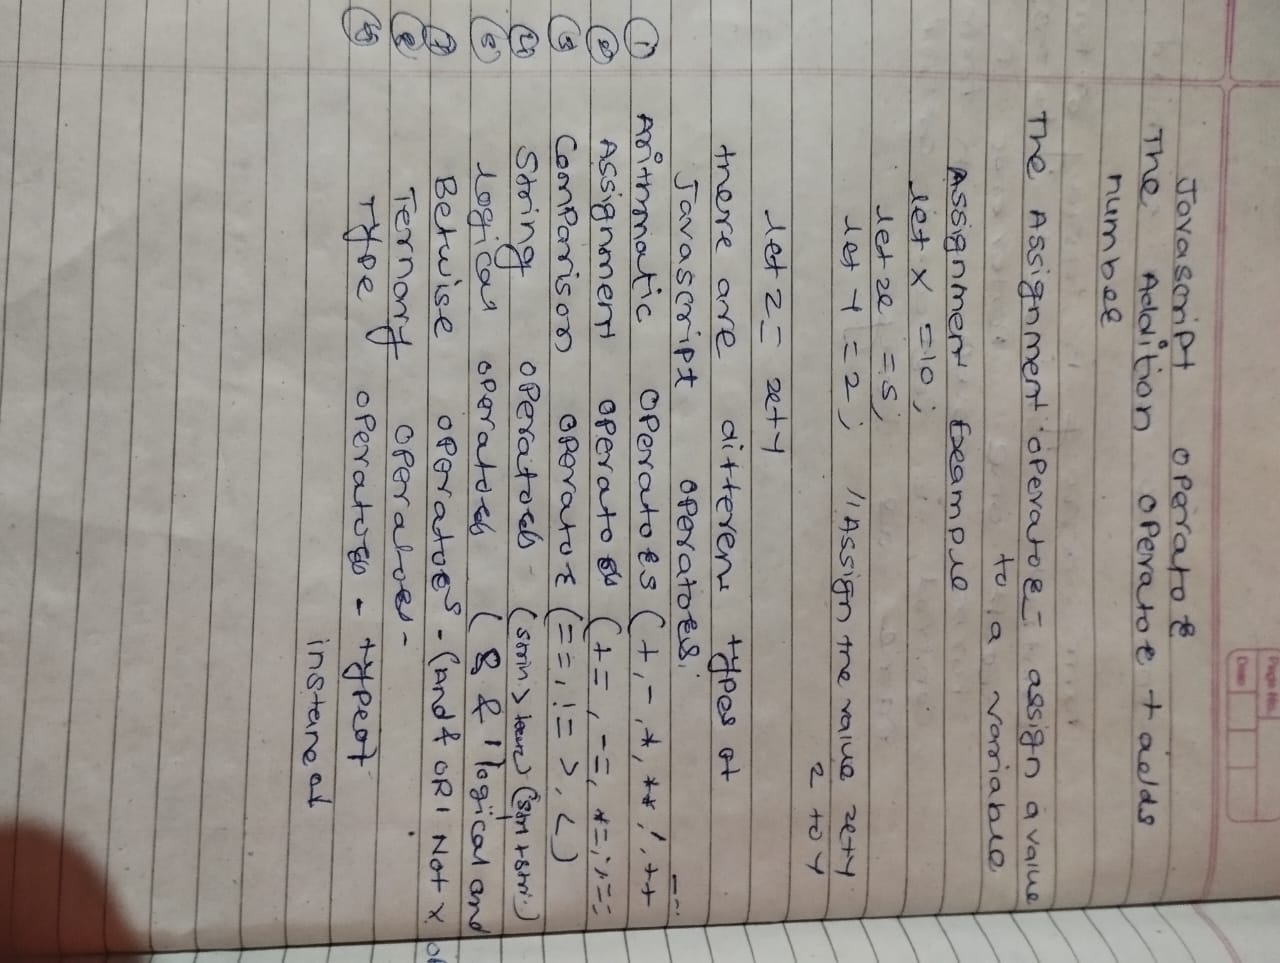 Page No.
Date
Javascript operator
The Addition operator + adds
number
The Assignment operator - assign a value
to a variable
Assignment Example
let x = 10;
let x = 5;
let y = 2; // Assign the value x+y
2 to y
let z = x+y
there are different types of
Javascript operators.
① Arithmatic operators (+, -, *, **, /, ++ --
② Assignment operators (+=, -=, *=,
③ Comparison operator (==, != >, <)
④ String operators
⑤ logical operators ( & & logical and
⑦ Betwise operators - (And & OR | Not X
⑧ Ternary operators -
Type operators - typeof
instaneof